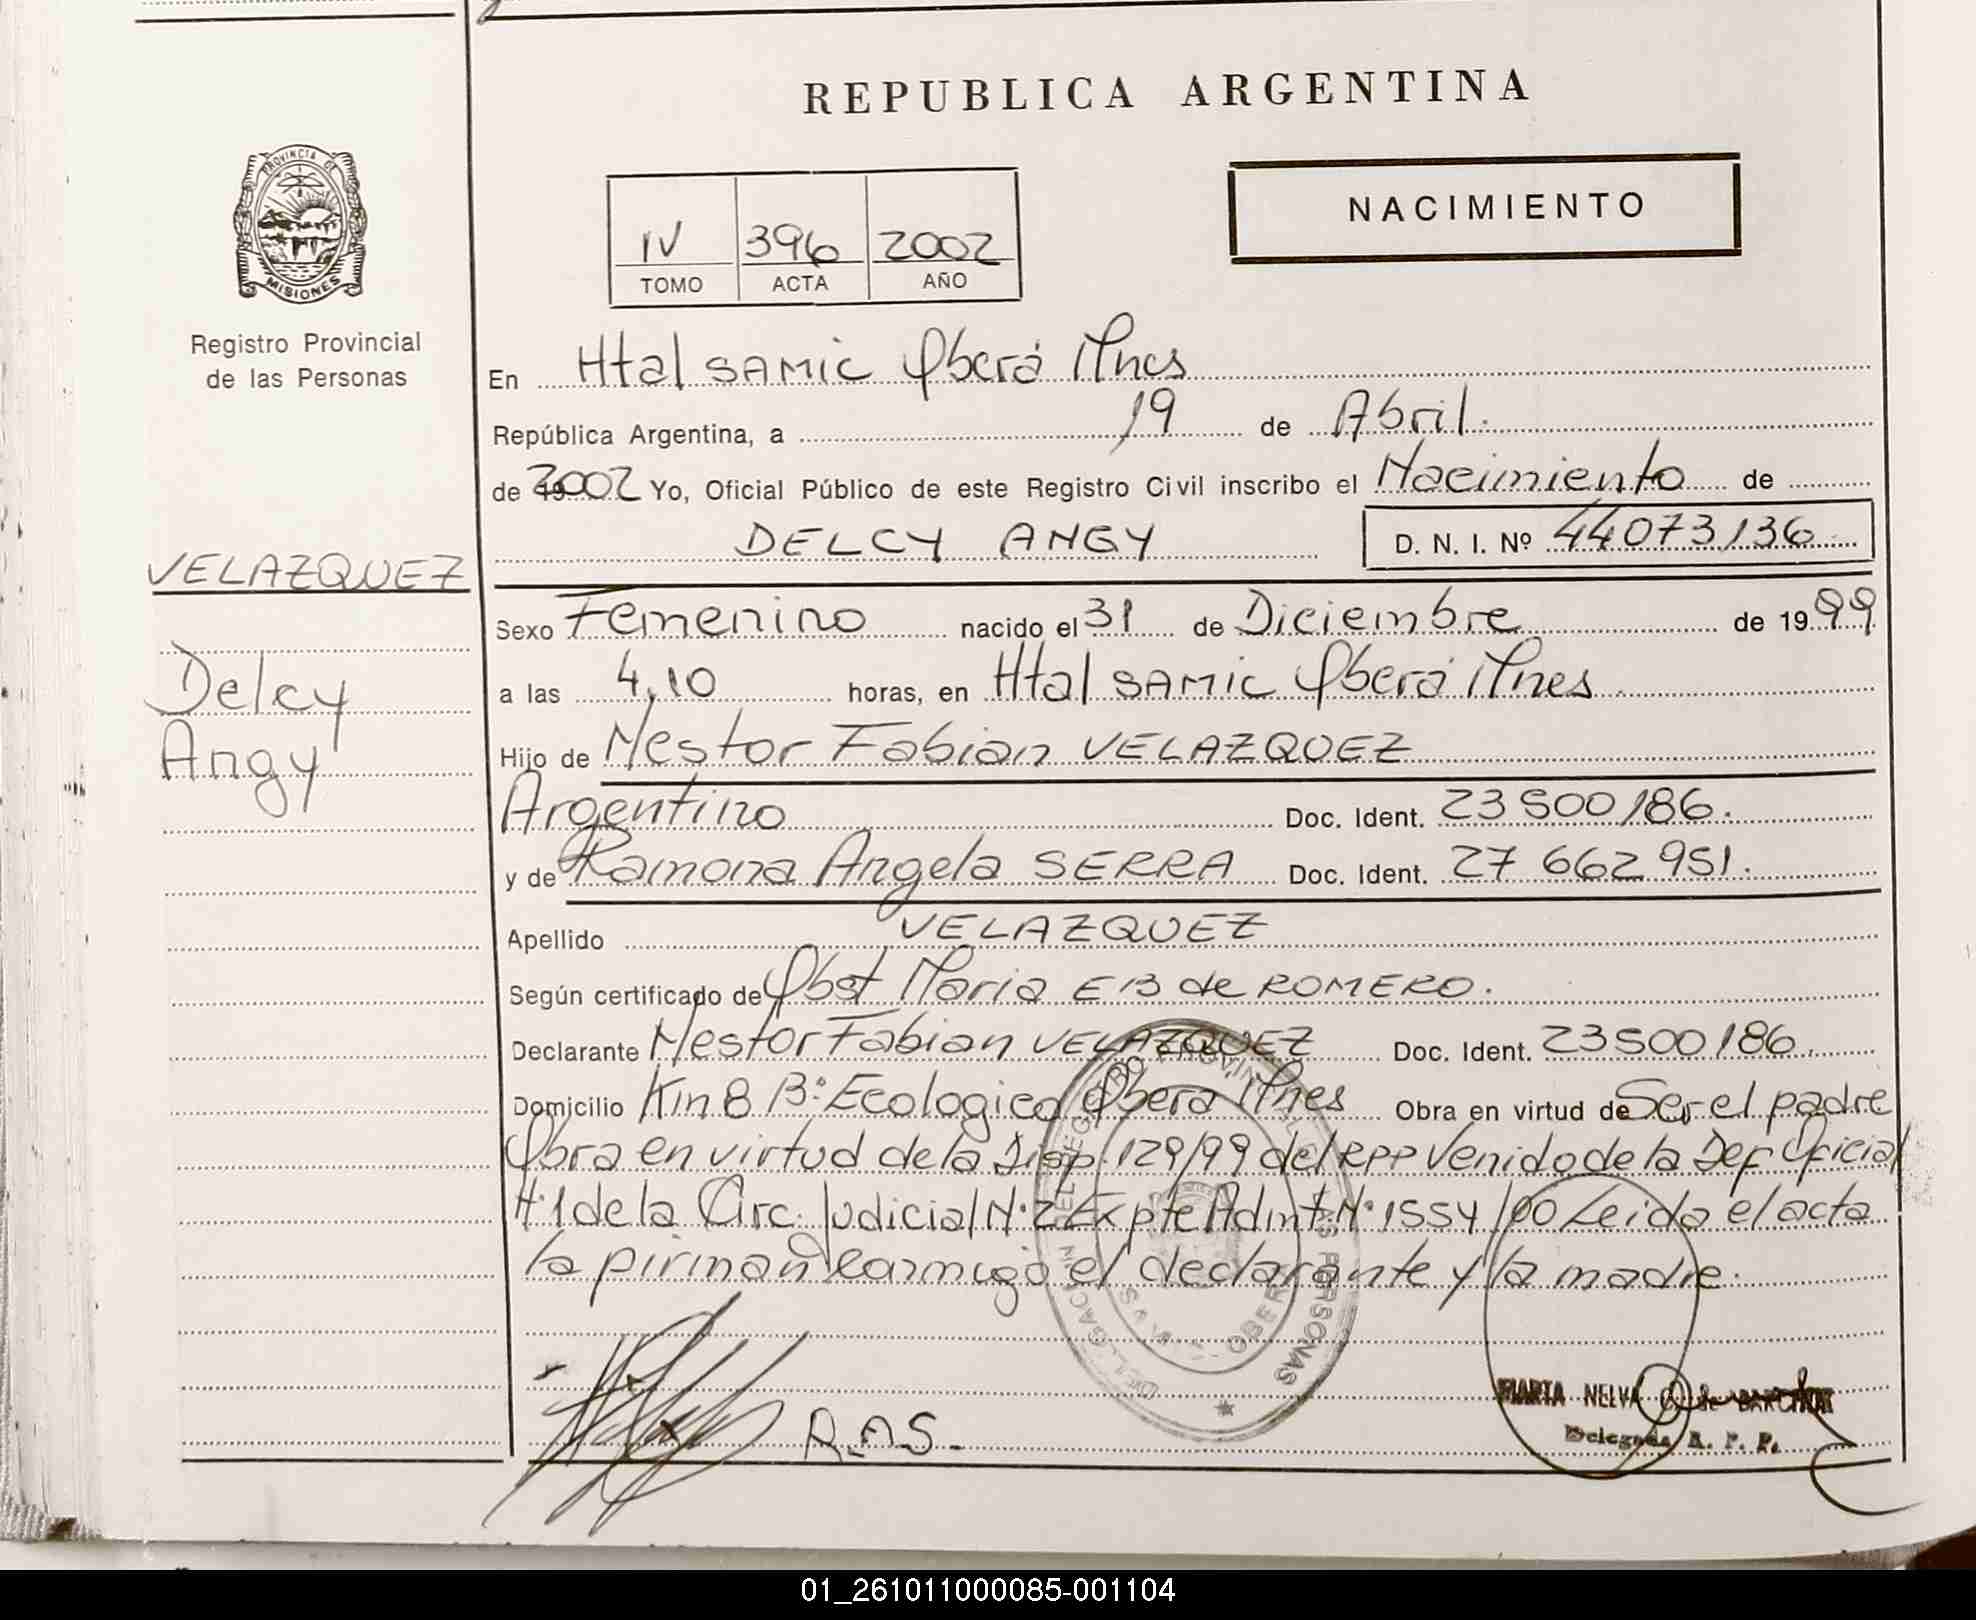 REPUBLICA ARGENTINA
PROVINCIA DE
MISIONES
NACIMIENTO
IV 396 2002
TOMO ACTA AÑO
Registro Provincial
de las Personas
En Htal SAMIC Oberá Mnes
República Argentina, a 19 de Abril.
de 2002 Yo, Oficial Público de este Registro Civil inscribo el Nacimiento de
DELCY ANGY D. N. I. Nº 44073136
VELAZQUEZ
Delcy
Angy
Sexo Femenino nacido el 31 de Diciembre de 1999
a las 4,10 horas, en Htal SAMIC Oberá Mnes
Hijo de Nestor Fabian VELAZQUEZ
Argentino Doc. Ident. 23500186.
y de Ramona Angela SERRA Doc. Ident. 27 662 951.
Apellido VELAZQUEZ
Según certificado de Obst Maria E B de ROMERO.
Declarante Nestor Fabian VELAZQUEZ Doc. Ident. 23500186.
Domicilio Km 8 Bº Ecologico Obera Mnes Obra en virtud de Ser el padre
Obra en virtud de la Disp. 129/99 del RPP Venido de la Def Oficial
Nº1 de la Circ. Judicial Nº2 Expte Admt. Nº 1554/00 Leida el acta
la firman conmigo el declarante y la madre.
R.A.S.
MARTA NELVA
Delegada R. P. P.
01_261011000085-001104